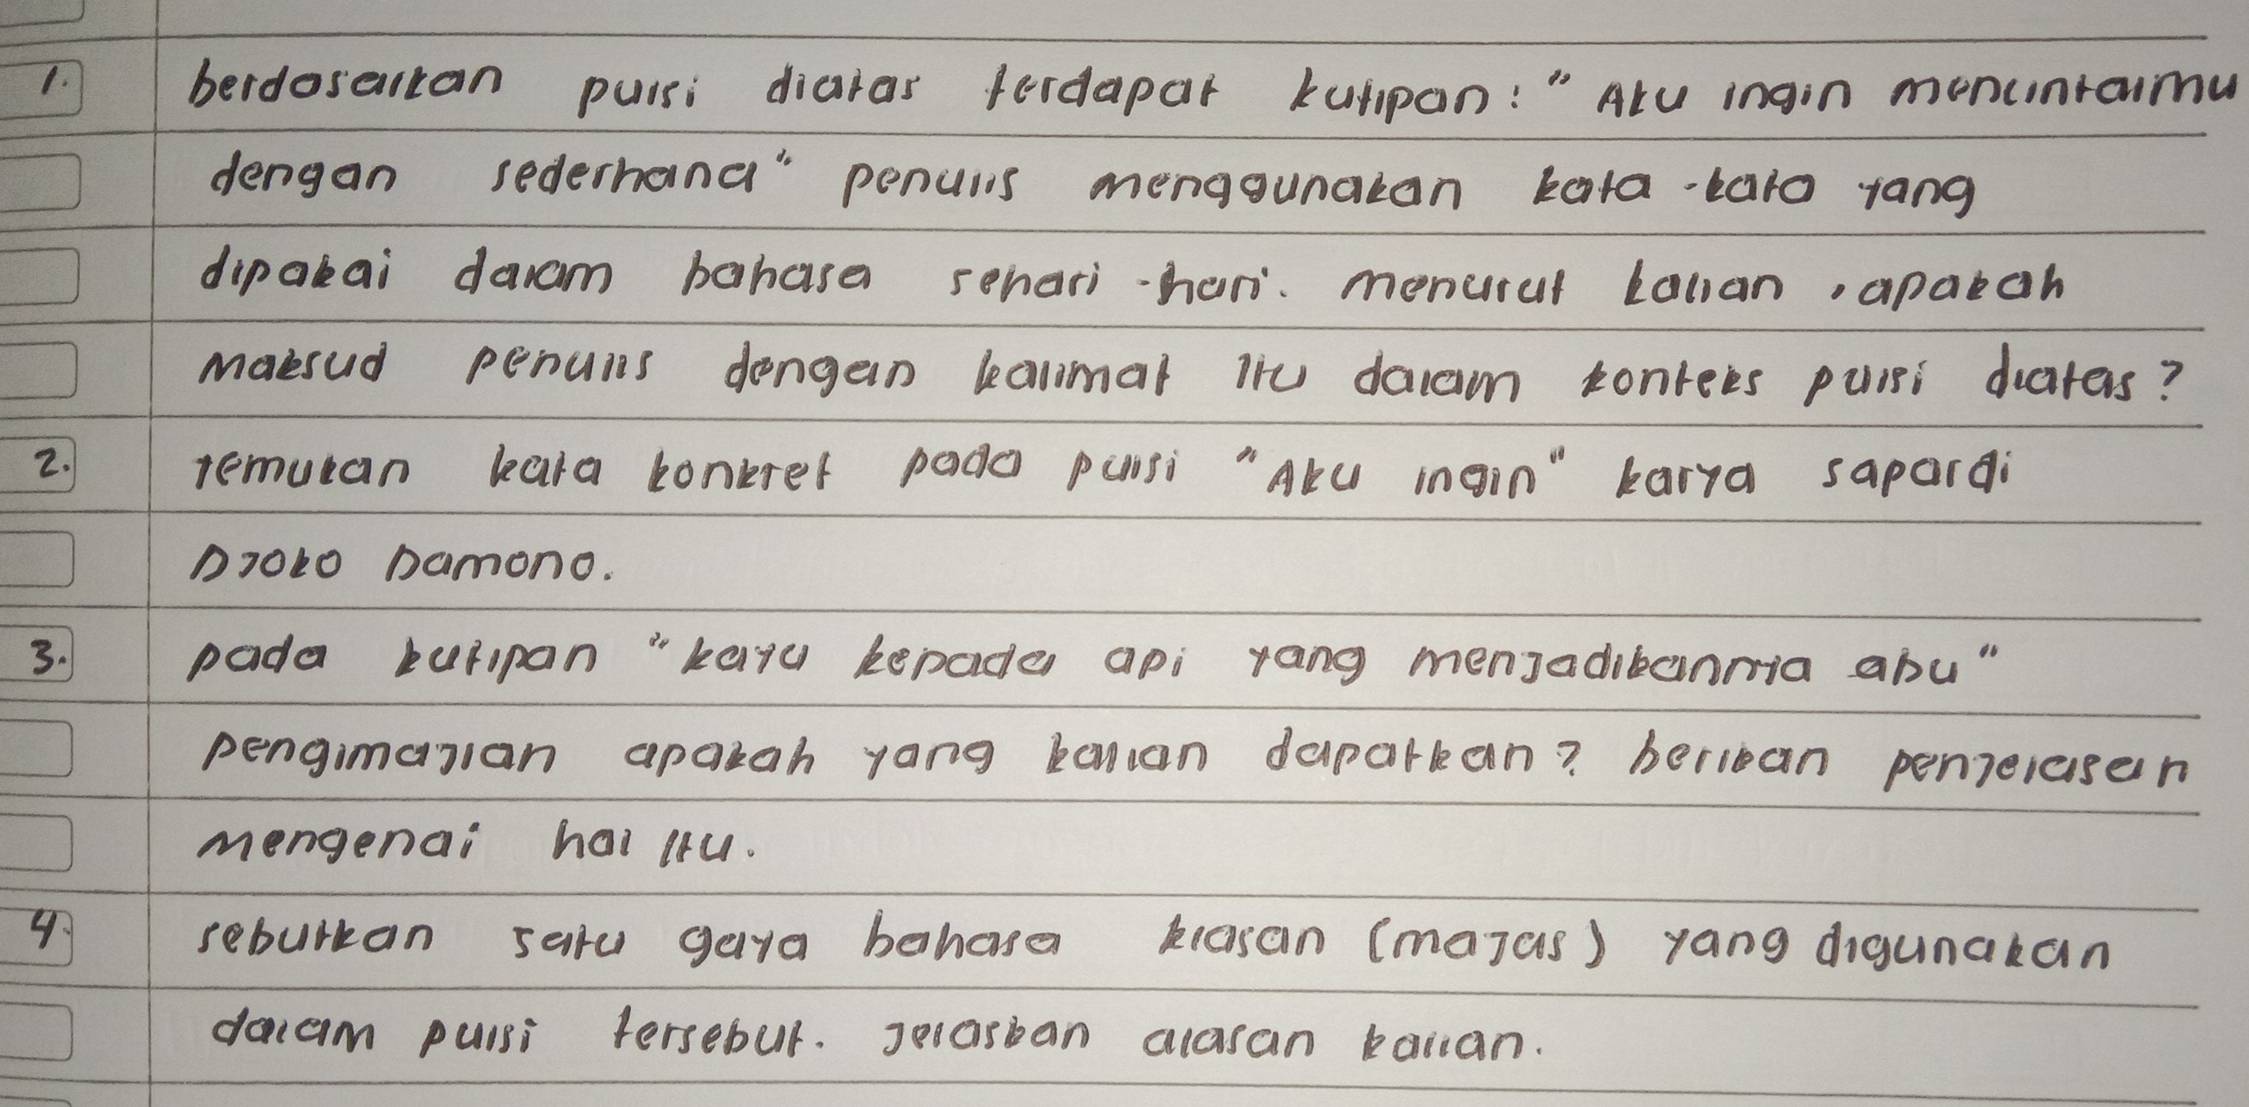 1. berdasarkan puisi diatas terdapat kutipan: "Aku ingin mencintaimu
dengan sederhana" penulis menggunakan kata-kata yang
dipakai dalam bahasa sehari-hari. menurut kalian, apakah
maksud penulis dengan kalimat itu dalam konteks puisi diatas?
2. Temukan kata konkret pada puisi "Aku ingin" karya sapardi
Djoko Damono.
3. pada kutipan "kayu kepada api yang menjadikannya abu"
pengimajian apakah yang kalian dapatkan? berikan penjelasan
mengenai hal itu.
4. sebutkan satu gaya bahasa kiasan (majas) yang digunakan
dalam puisi tersebut. Jelaskan alasan kalian.